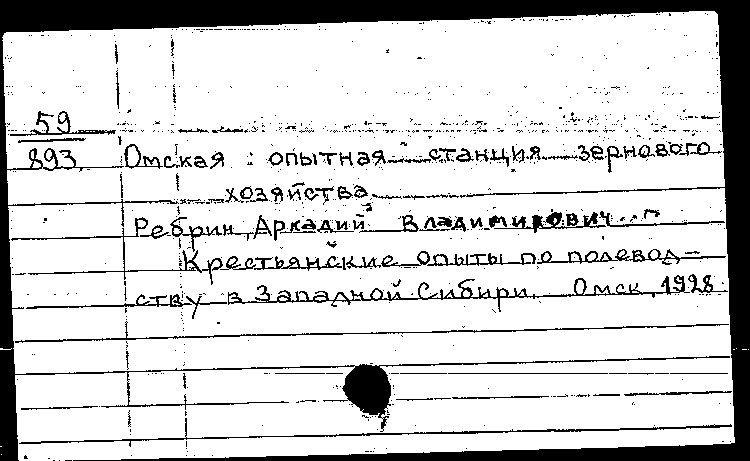 59
893
Омская опытная станция зернового
хозяйства
Ребрин, Аркадий Владимирович...
Крестьянские опыты по полевод-
ству в Западной Сибири. Омск, 1928